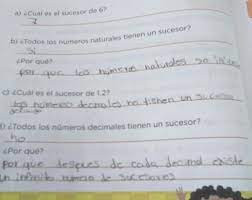 a) ¿Cuál es el sucesor de 6?
7
b) ¿Todos los números naturales tienen un sucesor?
Si
¿Por qué?
por que los números naturales son
c) ¿Cuál es el sucesor de 1,2?
los números decimales no tienen un sucesor
d) ¿Todos los números decimales tienen un sucesor?
no
¿Por qué?
Por que despues de cada decimal existe
un infinito número de sucesores